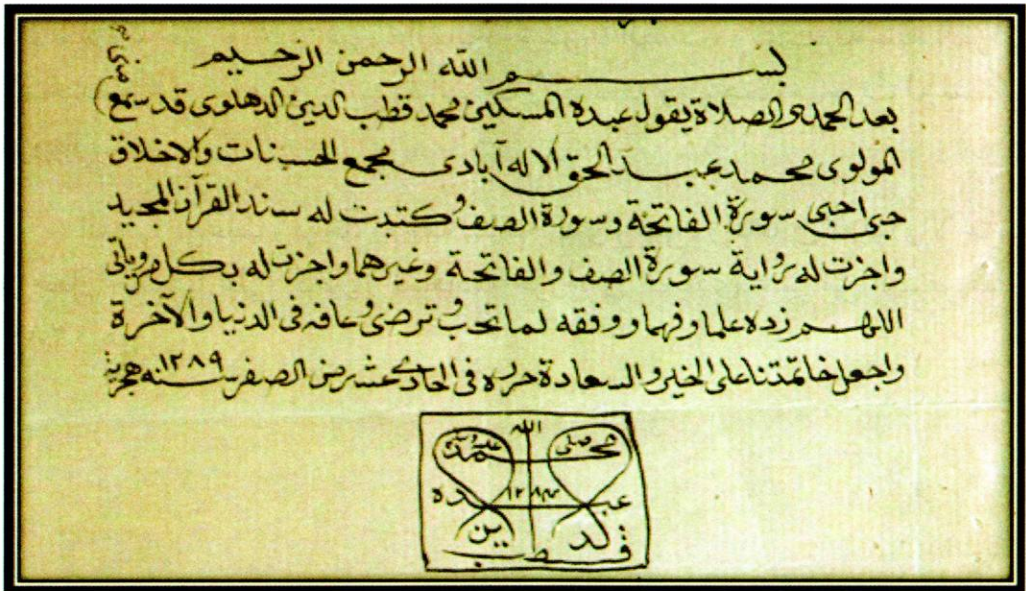 بســـم الله الرحمن الرحيم
بعد الحمد والصلاة يقول عبده المسكين محمد قطب الدين الدهلوى قد سمع منى
المولوى محمد عبد الحق الاله آبادى مجمع الحسنات والاخلاق
حبى احبى سورة الفاتحة وسورة الصف وكتبت له سند القرآن المجيد
واجزت له برواية سورة الصف والفاتحة وغيرهما واجزت له بكل مروياتى
اللهم زده علما وفهما ووفقه لما تحب وترضى وعافه فى الدنيا والآخرة
واجعل خاتمتنا على الخير والسعادة حرره فى الحادى عشر من الصفر سنه ١٢٨٩ هجرية
الله
محمد صلى
عبده
قطب الدين